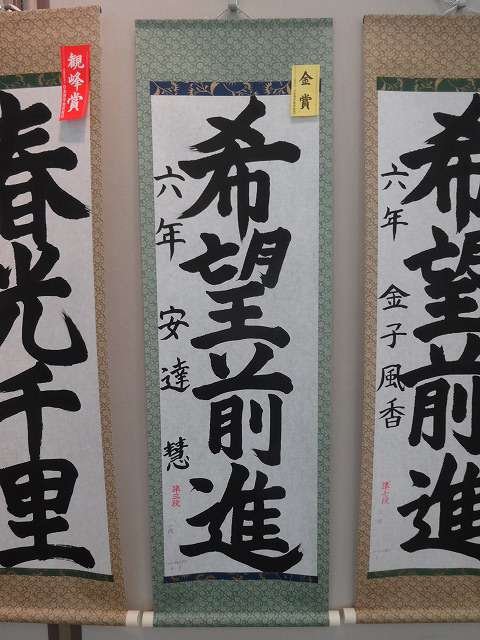 観峰賞
春光千里
金賞
希望前進
六年 安達 慧
準三段
希望前進
六年 金子風香
準七段